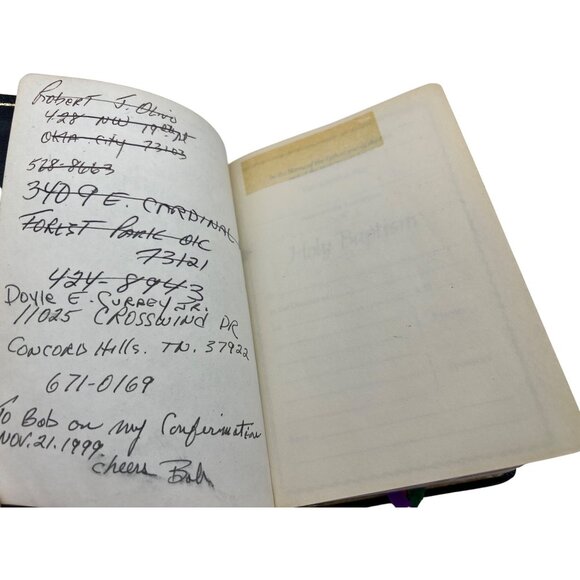 Robert J. Olivo
428 NW 19th St
Okla. City 73103
528-8663
3409 E. CARDINAL
FOREST PARK OK
73121
424-8943
Doyle E. Surrey JR.
11025 CROSSWIND DR
CONCORD Hills. TN. 37922
671-0169
To Bob on my Confirmation
NOV. 21. 1999
cheers Bob
Holy Baptism